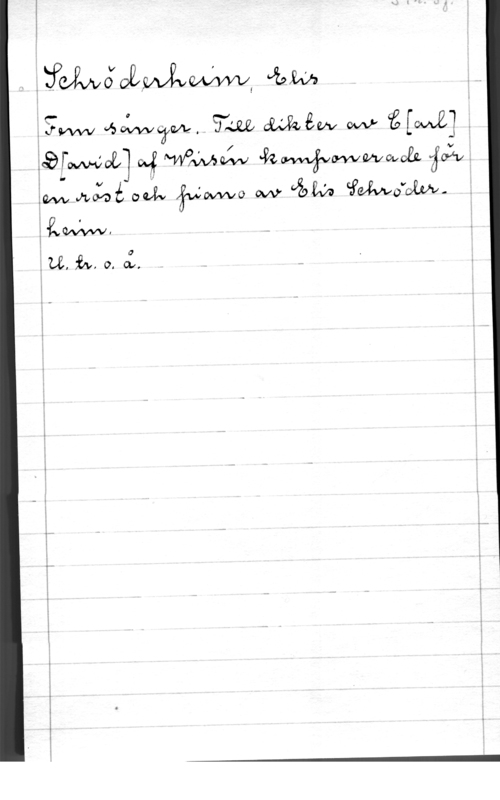 Schröderheim, Elis
Fem sånger. Till dikter av C[arl]
D[avid] af Wirsén komponerade för
en röst och piano av Elis Schröder-
heim.
U. tr. o. å.